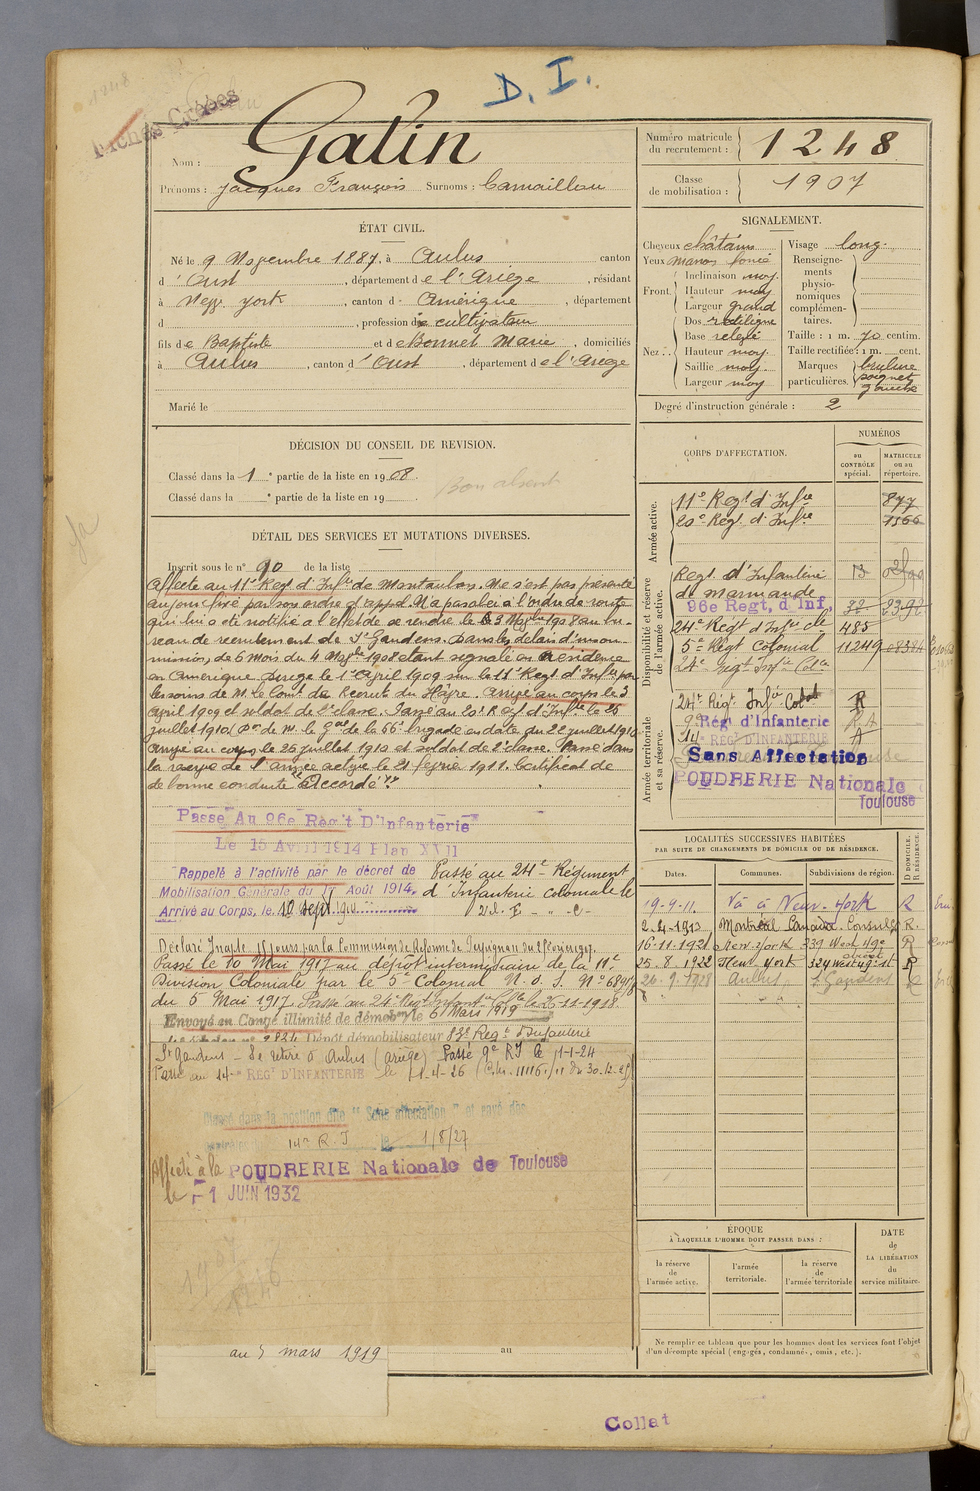 D. I.
Fiches Créées
Nom : Galin
Prénoms : Jacques François Surnoms : Camaillou
Numéro matricule du recrutement : 1248
Classe de mobilisation : 1907
ÉTAT CIVIL.
Né le 9 Novembre 1887, à Aulus canton
d'Oust, département de l'Ariège, résidant
à New york, canton d Amérique, département
d , profession de cultivateur
fils de Baptiste et de Bonnet Marie, domiciliés
à Aulus, canton d'Oust, département de l'Ariège
Marié le
SIGNALEMENT.
Cheveux châtains
Yeux marron foncé
Front. Inclinaison moy.
Hauteur moy
Largeur grand
Nez. Dos rectiligne
Base relevé
Hauteur moy.
Saillie moy.
Largeur moy
Visage long.
Renseignements physionomiques complémentaires.
Taille : 1 m. 70 centim.
Taille rectifiée : 1 m. cent.
Marques particulières. brulure poignet gauche
Degré d'instruction générale : 2
DÉCISION DU CONSEIL DE REVISION.
Classé dans la 1e partie de la liste en 1908.
Classé dans la e partie de la liste en 19
Bon absent
DÉTAIL DES SERVICES ET MUTATIONS DIVERSES.
Inscrit sous le n° 90 de la liste
Affecté au 11e Régt d'Infie de Montauban. Ne s'est pas présenté
au jour fixé par son ordre d'appel. N'a pas obéi à l'ordre de route
qui lui a été notifié à l'effet de se rendre le 3 Novbre 1908 au bu-
reau de recrutement de St Gaudens. Dans les délais d'insou-
mission, de 6 mois du 4 Novbre 1908 étant signalé en résidence
en Amérique. Dirigé le 1er Avril 1909 sur le 11e Régt d'Infie par
les soins de M. le Comt de Recrutt du Havre. Arrivé au corps le 3
Avril 1909 et soldat de 2e classe. Passé au 20e Régt d'Infie le 25
juillet 1910 (Don de M. le Gal de la 66e brigade en date du 22 juillet 1910
Arrivé au corps le 26 juillet 1910 et soldat de 2e classe. Passé dans
la réserve de l'armée active le 21 février 1911. Certificat de
de bonne conduite "Accordé".
Passé Au 96e Régt D'Infanterie
Le 15 Avril 1914 Plan XVII
Rappelé à l'activité par le décret de
Mobilisation Générale du 1er Août 1914.
Arrivé au Corps, le 10 sept 1914
Passé au 24e Régiment
d'Infanterie coloniale le
Déclaré Inapte 15 jours par la Commission de Réforme de Perpignan du
Passé le 10 Mai 1917 au dépôt intermédiaire de la 11e
Division Coloniale par le 5e Colonial N. O. S. N° 6891/8
du 5 Mai 1917. Passé au 24e Régt Infant Cle le 26-11-1918.
Envoyé en Congé illimité de démobon le 6 Mars 1919
Dépôt démobilisateur 83e Regt d'Infanterie
St Gaudens - Se retire à Aulus (Ariège) Passé 9e RI le 1-1-24
Passé au 14me REGt D'INFANTERIE le 1-4-26 (C.M. 11116/11 du 30-12-25)
Classé dans la position dite "Sans affectation" et rayé des
14e R. I le 1/8/27
Affecté à la POUDRERIE Nationale de Toulouse
le 1 JUIN 1932
au 5 mars 1919
au
CORPS D'AFFECTATION.
NUMÉROS
au CONTRÔLE spécial.
MATRICULE ou au répertoire.
Armée active.
11e Régt d'Infie 877
20e Régt d'Infie 1366
Disponibilité et réserve de l'armée active.
Régt d'Infanterie
de Marmande
96e Regt, d Inf,
24e Régt d'Infie cle 485
5e Régt Colonial 11249
24e Régt Infie Cole
Armée territoriale et sa réserve.
24e Régt Infie Colale R
9e Régt d'Infanterie RA
14e REGt D'INFANTERIE A
Sans Affectation
POUDRERIE Nationale
Toulouse
LOCALITÉS SUCCESSIVES HABITÉES
PAR SUITE DE CHANGEMENTS DE DOMICILE OU DE RÉSIDENCE.
Dates. Communes. Subdivisions de région. D DOMICILE. R RÉSIDENCE.
19-9-11. Va à New-York R
2-4-1913 Montréal Canada. Consulat R.
16-11-1921 New-York 339 West 49e R
25-8-1922 New York 324 West 49 st street R
26-9-1928 Aulus St Gaudens R
ÉPOQUE
À LAQUELLE L'HOMME DOIT PASSER DANS :
la réserve de l'armée active.
l'armée territoriale.
la réserve de l'armée territoriale
DATE de LA LIBÉRATION du service militaire.
Ne remplir ce tableau que pour les hommes dont les services font l'objet
d'un décompte spécial (engagés, condamnés, omis, etc.).
Collat